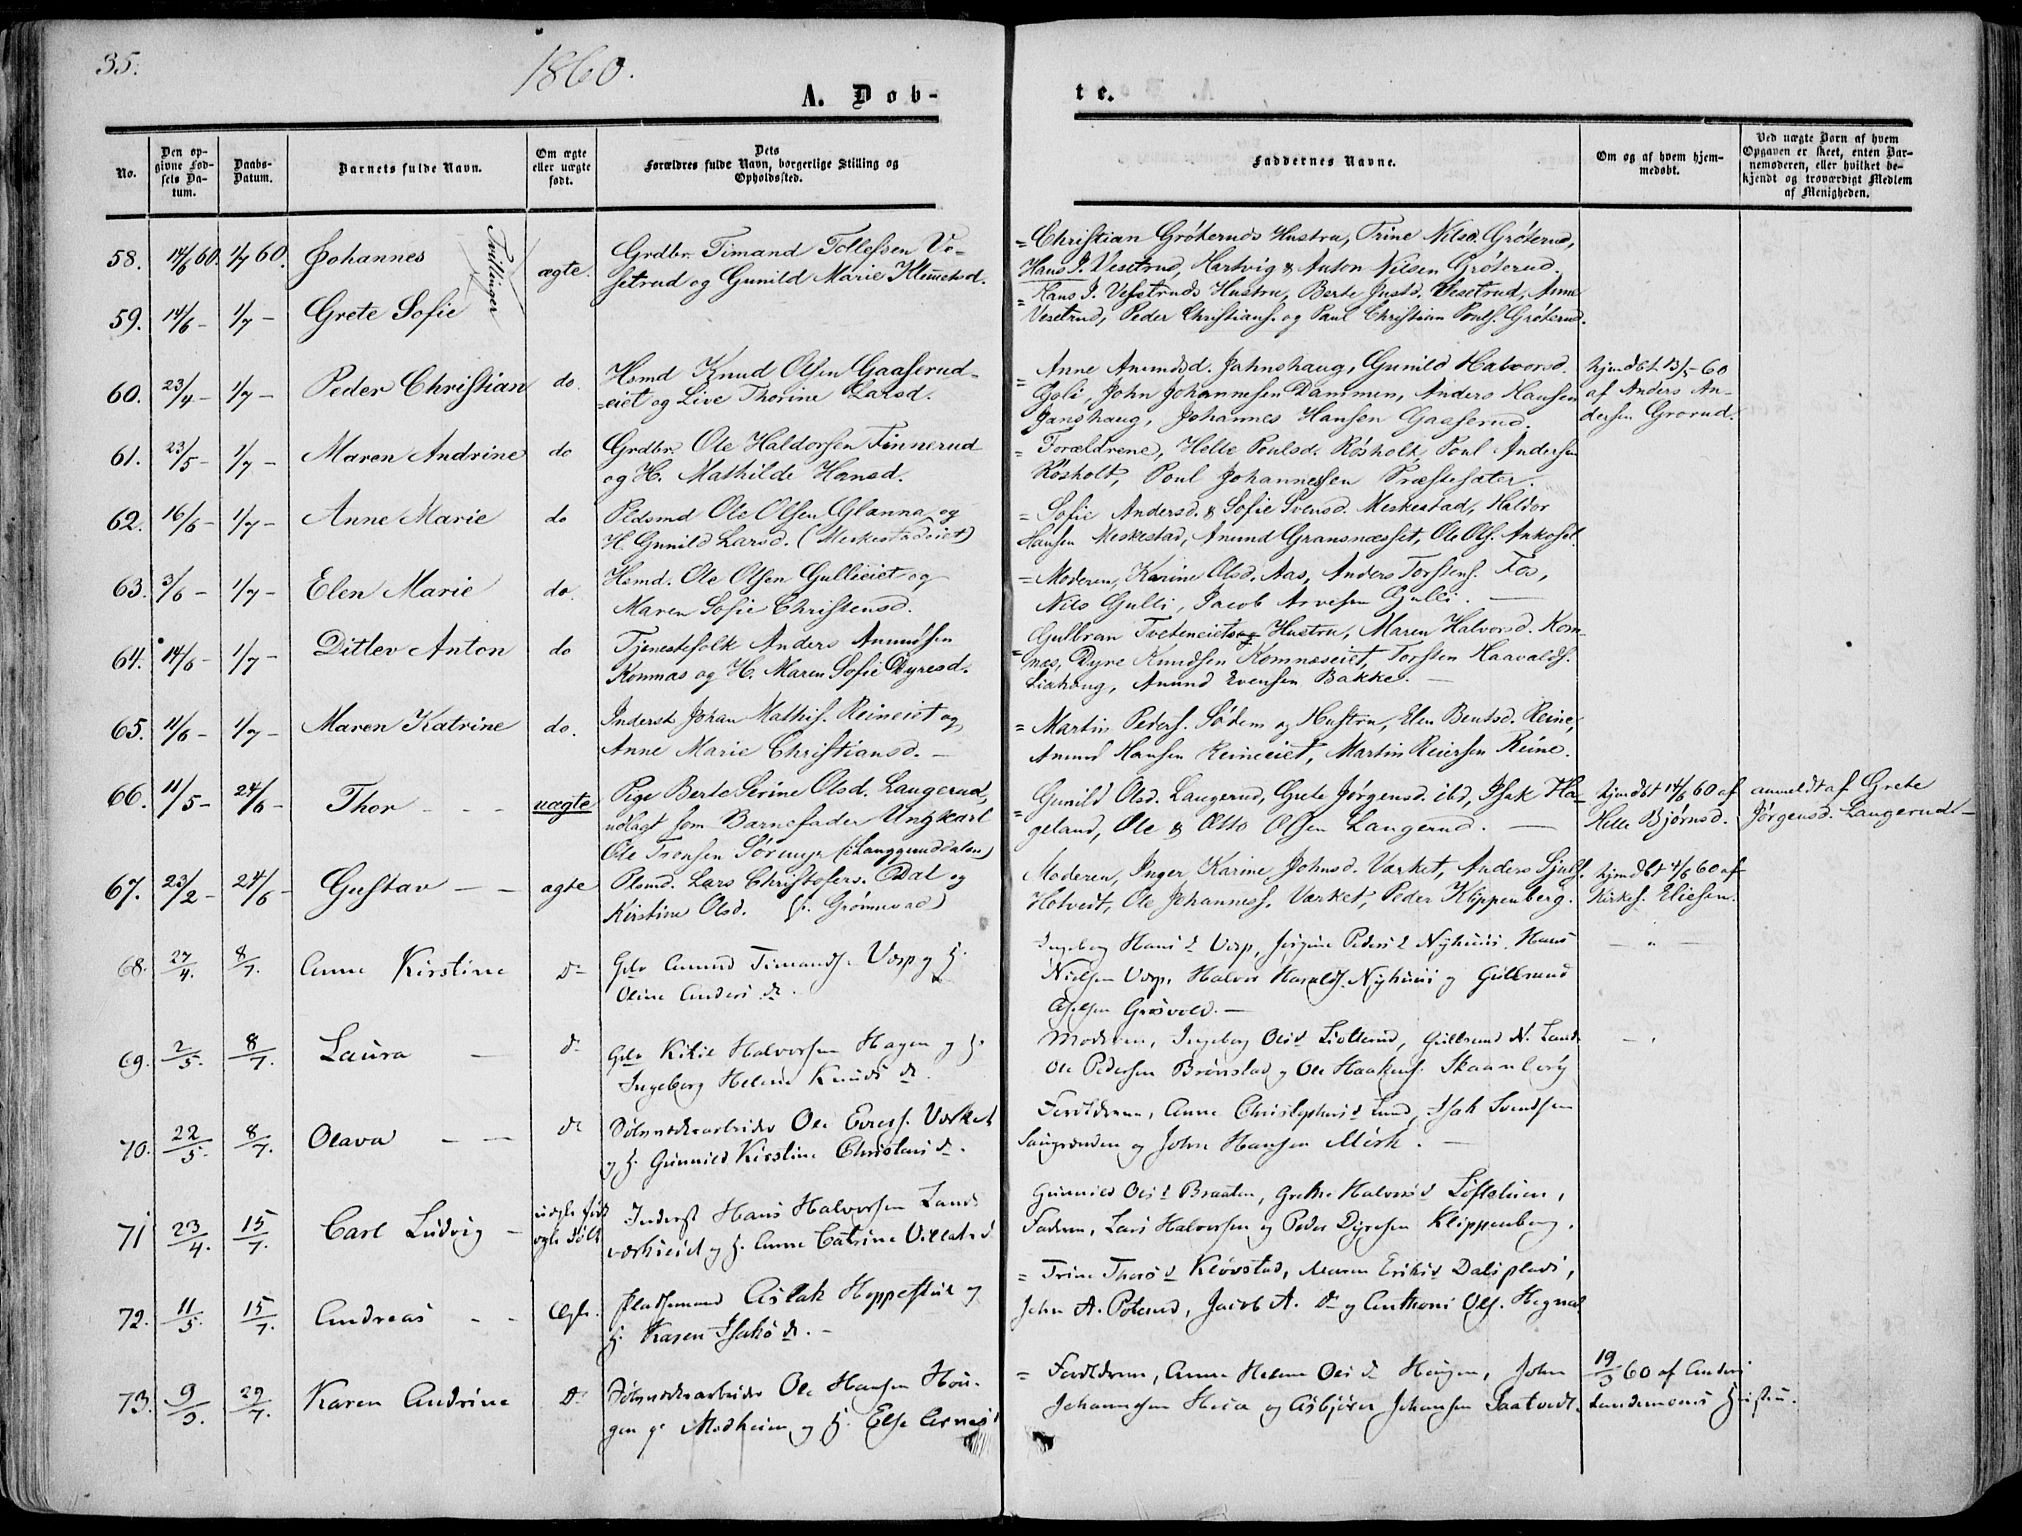 35.
1860.
A. Døb-
te.
No.
Den op-
givne Fød-
sels Da-
tum.
Daabs-
Datum.
Barnets fulde Navn.
Om ægte
eller uægte
født.
Dets
Forældres fulde Navn, borgerlige Stilling og
Opholdssted.
Faddernes Navne.
Om og af hvem hjem-
medøbt.
Ved uægte Barn af hvem
Opgaven er skeet, enten Bar-
nemoderen, eller hvilket be-
kjendt og troværdigt Medlem
af Menigheden.
58. 14/6 60. 1/7 60. Johannes
Tvillinger
ægte.
Grdbr. Timand Tollefsen Ve-
setrud og Gunild Marie Klemetsd.
= Christian Grøteruds Hustru, Trine Nilsd. Grøterud,
Hans J. Vesetrud, Hartvig & Anton Nilsen Grøterud.
59. 14/6 - 1/7 - Grete Sofie
= Hans J. Vesetruds Hustru, Berte Justd. Vesetrud, Anne
Vesetrud, Peder Christians. og Paul Christian Pauls. Grøterud.
60. 23/4 - 1/7 - Peder Christian do.
Hsmd Knud Olsen Gaaserud-
=eiet og Live Thorine Larsd.
= Anne Amundsd. Jahnshaug, Gunild Halvorsd.
Goli, John Johannesen Dammen, Anders Hansen
Janshaug, Johannes Hansen Gaaserud.
hjmdbt 13/5 60
af Anders An-
dersen Grorud.
61. 23/5 - 1/7 - Maren Andrine do
Grdbr. Ole Haldorsen Finnerud
og H. Mathilde Hansd.
= Forældrene, Helle Poulsd. Røsholt, Poul Andersen
Røsholt, Poul Johannessen Præstesæter.
62. 16/6 - 1/7 - Anne Marie do
Pldsmd Ole Olsen Glanna og
H. Gunild Larsd. (Meskestadeiet)
= Sofie Andersd. & Sofie Svensd. Meskestad, Haldor
Hansen Meskestad, Amund Gransnæsset, Ole Ols.
63. 3/6 - 1/7 - Elen Marie do.
Hsmd. Ole Olsen Gullieiet og
Maren Sofie Christensd.
= Moderen, Karine Olsd. Aas, Anders Torstens. Fos,
Nils Gulli, Jacob Arvesen Gulli. —
64. 14/6 - 1/7 - Ditlev Anton do
Tjenestefolk Anders Amundsen
Komnæs og H. Maren Sofie Dyresd.
= Gulbran Tveteneiet og Hustru, Maren Halvorsd. Kom-
næs, Dyre Knudsen Komnæseiet, Torsten Haavalds.
Liahaug, Amund Evensen Bakke. —
65. 11/6 - 1/7 - Maren Katrine do.
Inderst Johan Mathis. Reineiet og
Anne Marie Christiansd. —
= Martin Peders. Sødem og Hustru, Elen Bentsd. Reine,
Amund Hansen Reineeiet, Martin Reiersen Reine.
66. 11/5 - 24/6 - Thor - - - uægte
Pige Berte Serine Olsd. Langerud,
udlagt som Barnefader Ungkarl
Ole Tronsen Sørump (i Langgunddalen)
= Gunild Olsd. Langerud, Grete Jørgensd. ibd, Isak Ha-
geland, Ole & Otto Olsen Langerud. —
hjmdbt 14/6 60 af
Helle Bjørnsd.
anmeldt af Grete
Jørgensd. Langerud. —
67. 23/2 - 24/6 - Gustav — — ægte
Plsmd. Lars Christofers. Dal og
Kirstine Olsd. (f. Grønnevad)
Moderen, Inger Karine Johnsd. Værket, Anders Sjuls.
Hotvedt, Ole Johanness. Værket, Peder Klippenberg.
hjmdbt 4/6 60 af
Kirkes. Eliesen.
68. 27/4. 8/7. Anne Kirstine d-
Gdr Amund Timands. Vasp og H.
Oline Anders dr.
Ingeborg Hans d Vasp, Jørgine Peders d Nyhuus, Hans
Nielsen Vasp, Halvor Haralds. Nyhuus og Gullbrand
Grøsvold. —
— " —
69. 2/5. 8/7. Laura — d-
Gdr Halvorsen Hagen og H.
Ingeborg Helene Knuds dr.
Moderen, Ingeborg Ols d Liollerud, Gullbrand N. Lande
Ole Pedersen Brønstad og Ole Haakens. Skaanborg
70. 22/5. 8/7. Olava — — dr
Sølvværksarbeider Ole Evers. Værket
og H. Gunnild Kirstine Christens dr.
Forældrene, Anne Christophers d Lund, Isak Svendsen
Saugrenden og John Hansen Mørk. —
71 23/4. 15/7. Carl Ludvig — uægte født
ægte døbt
Inderst Hans Halvorsen Lands-
værkseiet og H. Anne Catrine Villats d
Gunnild Ols d Braaten, Grethe Halvors d Loftstuen,
Faderen, Lars Halvorsen og Peder Dyresen Klippenberg.
72. 11/5. 15/7. Andreas - - Ægte.
Pladsmand Aslak Hoppestue og
H. Karen Isaks dr. —
= Trine Thors d Kløvstad, Maren Eriks d Dalsplads,
John A. Poterud, Jacob A. do og Anthoni Ols. Hegna
73. 9/5. 29/7. Karen Andrine do
Sølvværksarbeider Ole Hansen Hou-
gen p. Modheim og H. Else Arnes d
= Forældrene, Anne Helene Ols d Haugen, John
Johannesen Heia og Asbjørn Johansen Saatvedt.
19/5 60 af Anders
Landsmoens Hustru.